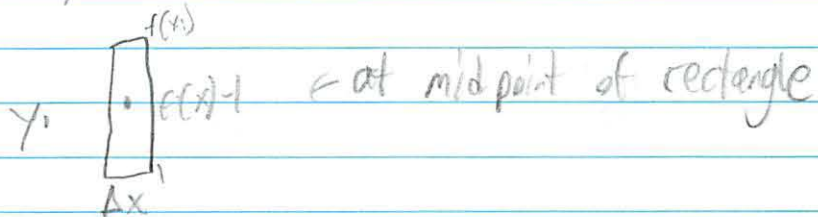 f(xᵢ)
f(x)-1 ← at midpoint of rectangle
yᵢ
1
Δx